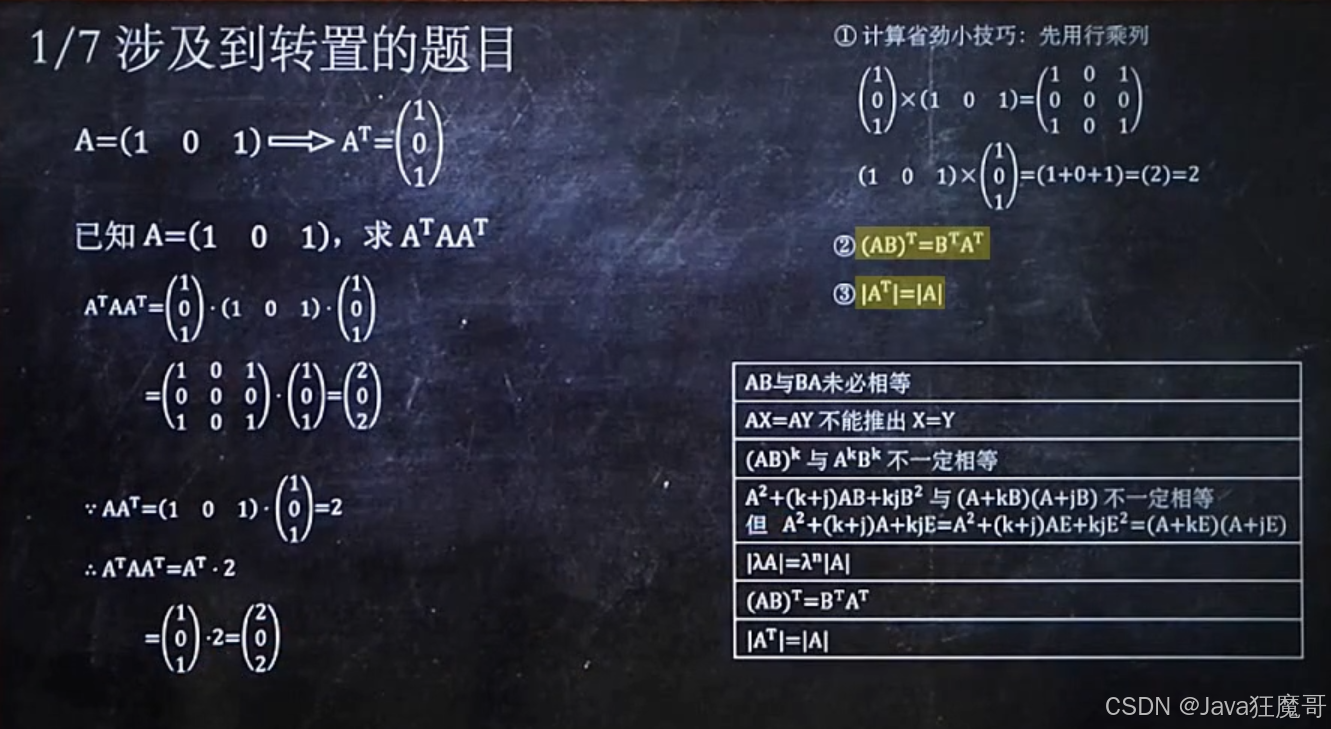 1/7 涉及到转置的题目
A=(1 0 1)⟹Aᵀ=(1 0 1)
已知 A=(1 0 1)，求 AᵀAAᵀ
AᵀAAᵀ=(1 0 1)·(1 0 1)·(1 0 1)
=(1 0 1
0 0 0
1 0 1)·(1 0 1)=(2 0 2)
∵ AAᵀ=(1 0 1)·(1 0 1)=2
∴ AᵀAAᵀ=Aᵀ·2
=(1 0 1)·2=(2 0 2)
① 计算省劲小技巧：先用行乘列
(1 0 1)×(1 0 1)=(1 0 1
0 0 0
1 0 1)
(1 0 1)×(1 0 1)=(1+0+1)=(2)=2
② (AB)ᵀ=BᵀAᵀ
③ |Aᵀ|=|A|
AB与BA未必相等
AX=AY 不能推出 X=Y
(AB)ᵏ 与 AᵏBᵏ 不一定相等
A²+(k+j)AB+kjB² 与 (A+kB)(A+jB) 不一定相等
但 A²+(k+j)A+kjE=A²+(k+j)AE+kjE²=(A+kE)(A+jE)
|λA|=λⁿ|A|
(AB)ᵀ=BᵀAᵀ
|Aᵀ|=|A|
CSDN @Java狂魔哥